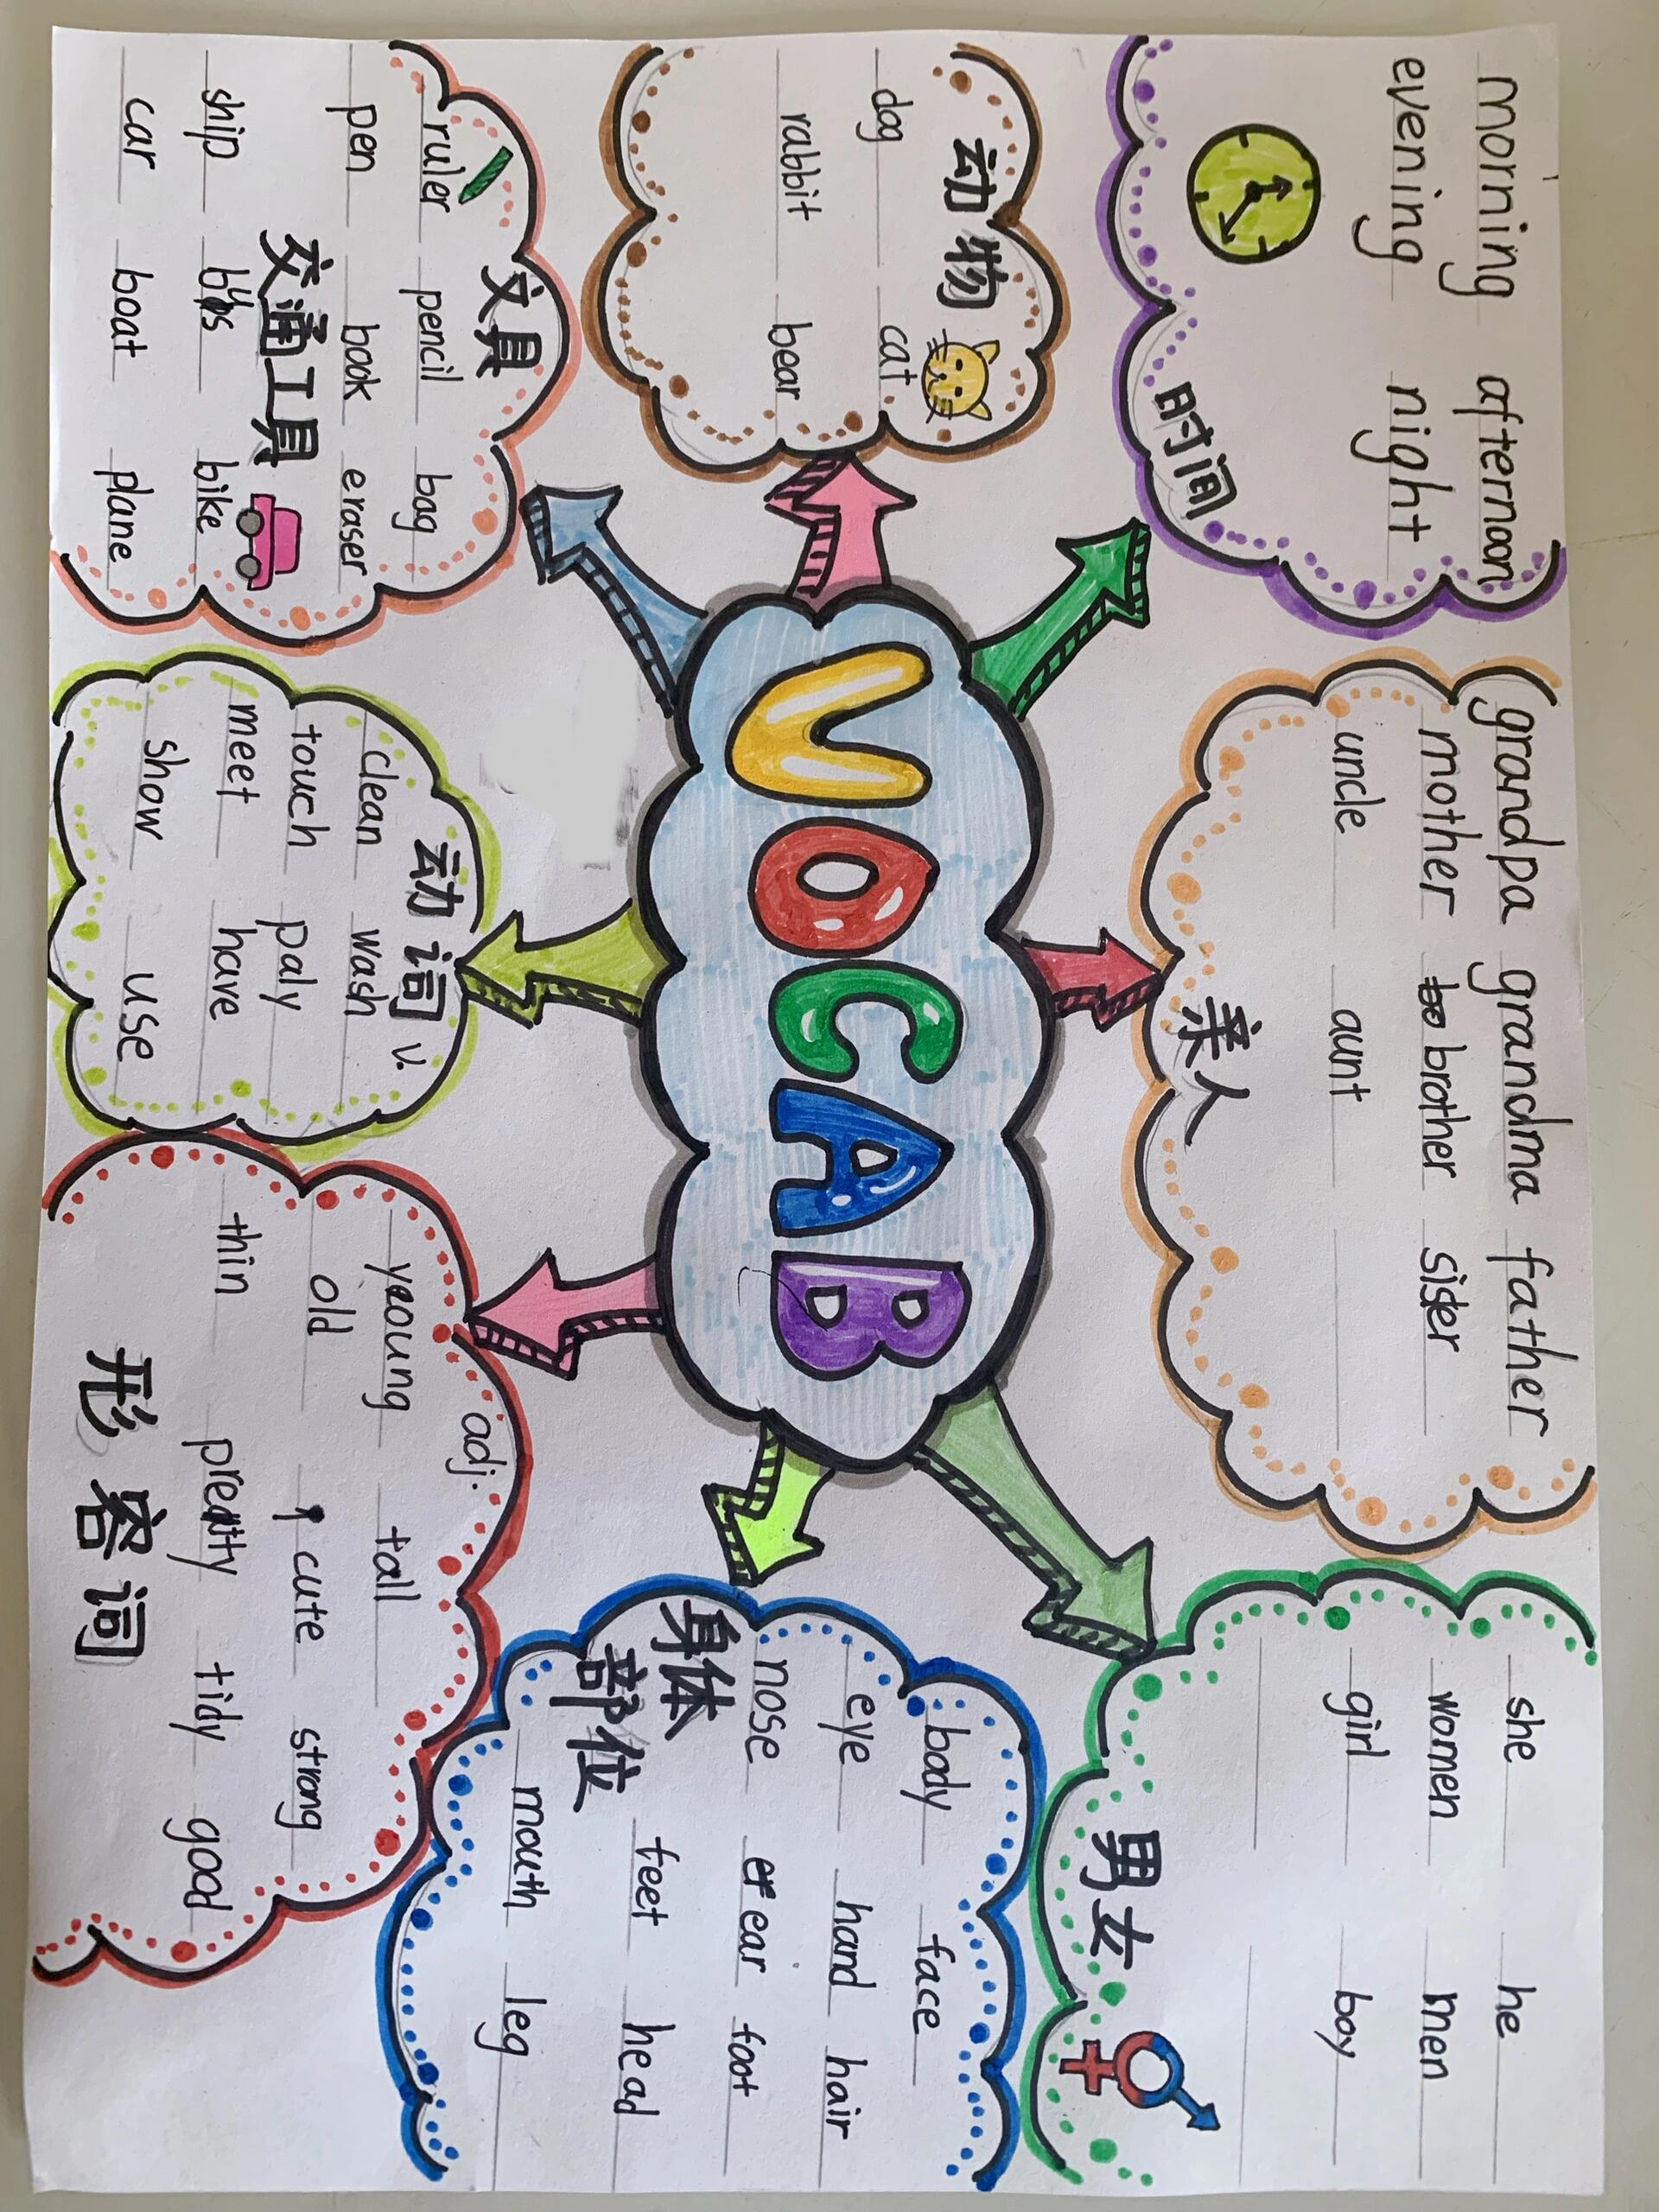 morning afternoon
evening night
时间
grandpa grandma father
mother brother sister
uncle aunt
亲人
she he
women men
girl boy
男女
动物
dog cat
rabbit bear
VOCAB
body face
eye hand hair
nose ear foot
feet head
mouth leg
身体
部位
文具
ruler pencil bag
pen book eraser
交通工具
ship bus bike
car boat plane
动词 v.
clean wash
touch paly
meet have
show use
adj.
yeoung tall
old cute strong
thin pretty tidy good
形容词